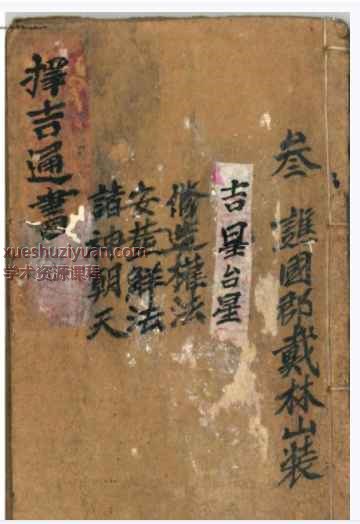 叁 譙國郡戴林山裝
吉星台星
脩造權法
安葬觧法
諸神朝天
擇吉通書
xueshuziyuan.com
学术资源课程